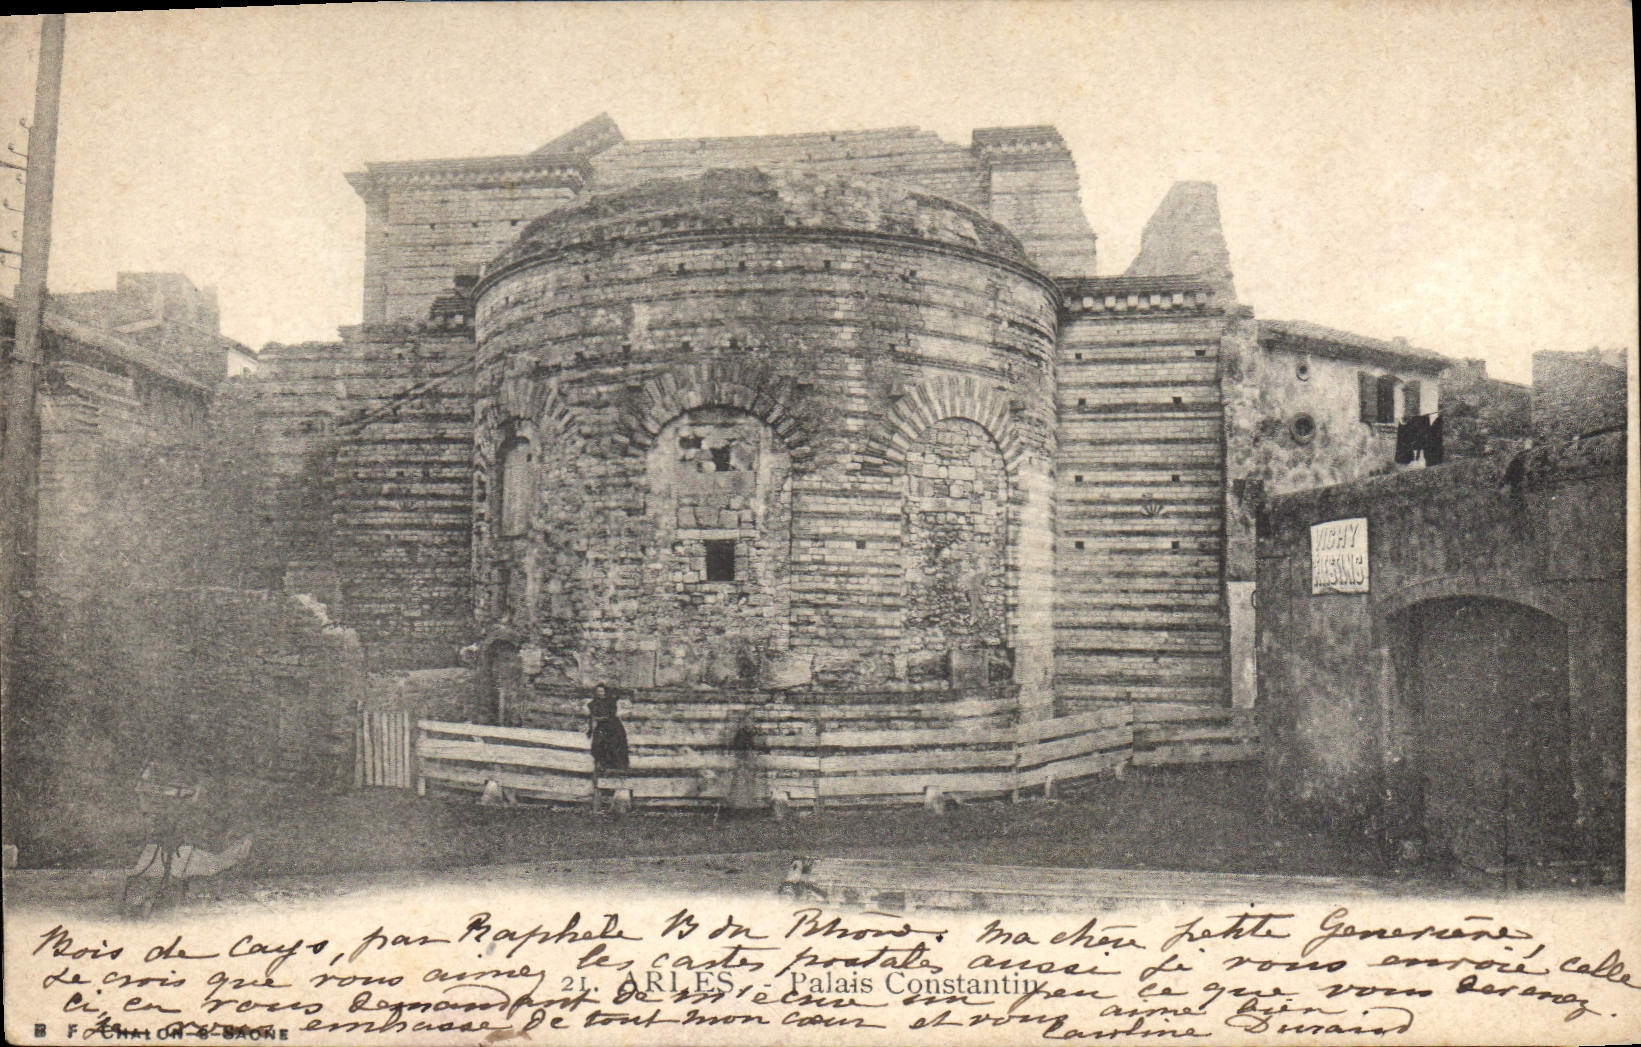 VICHY
CELESTINS
Bois de Cays, par Raphèle B du Rhône. Ma chère petite Geneviève,
Je crois que vous aimez les cartes postales aussi je vous envoie celle
21. ARLES. - Palais Constantin
ci, en vous demandant de m'écrire un peu ce que vous devenez.
Je vous embrasse de tout mon cœur et vous aime bien
Caroline Durand
B F CHALON-S-SAÔNE